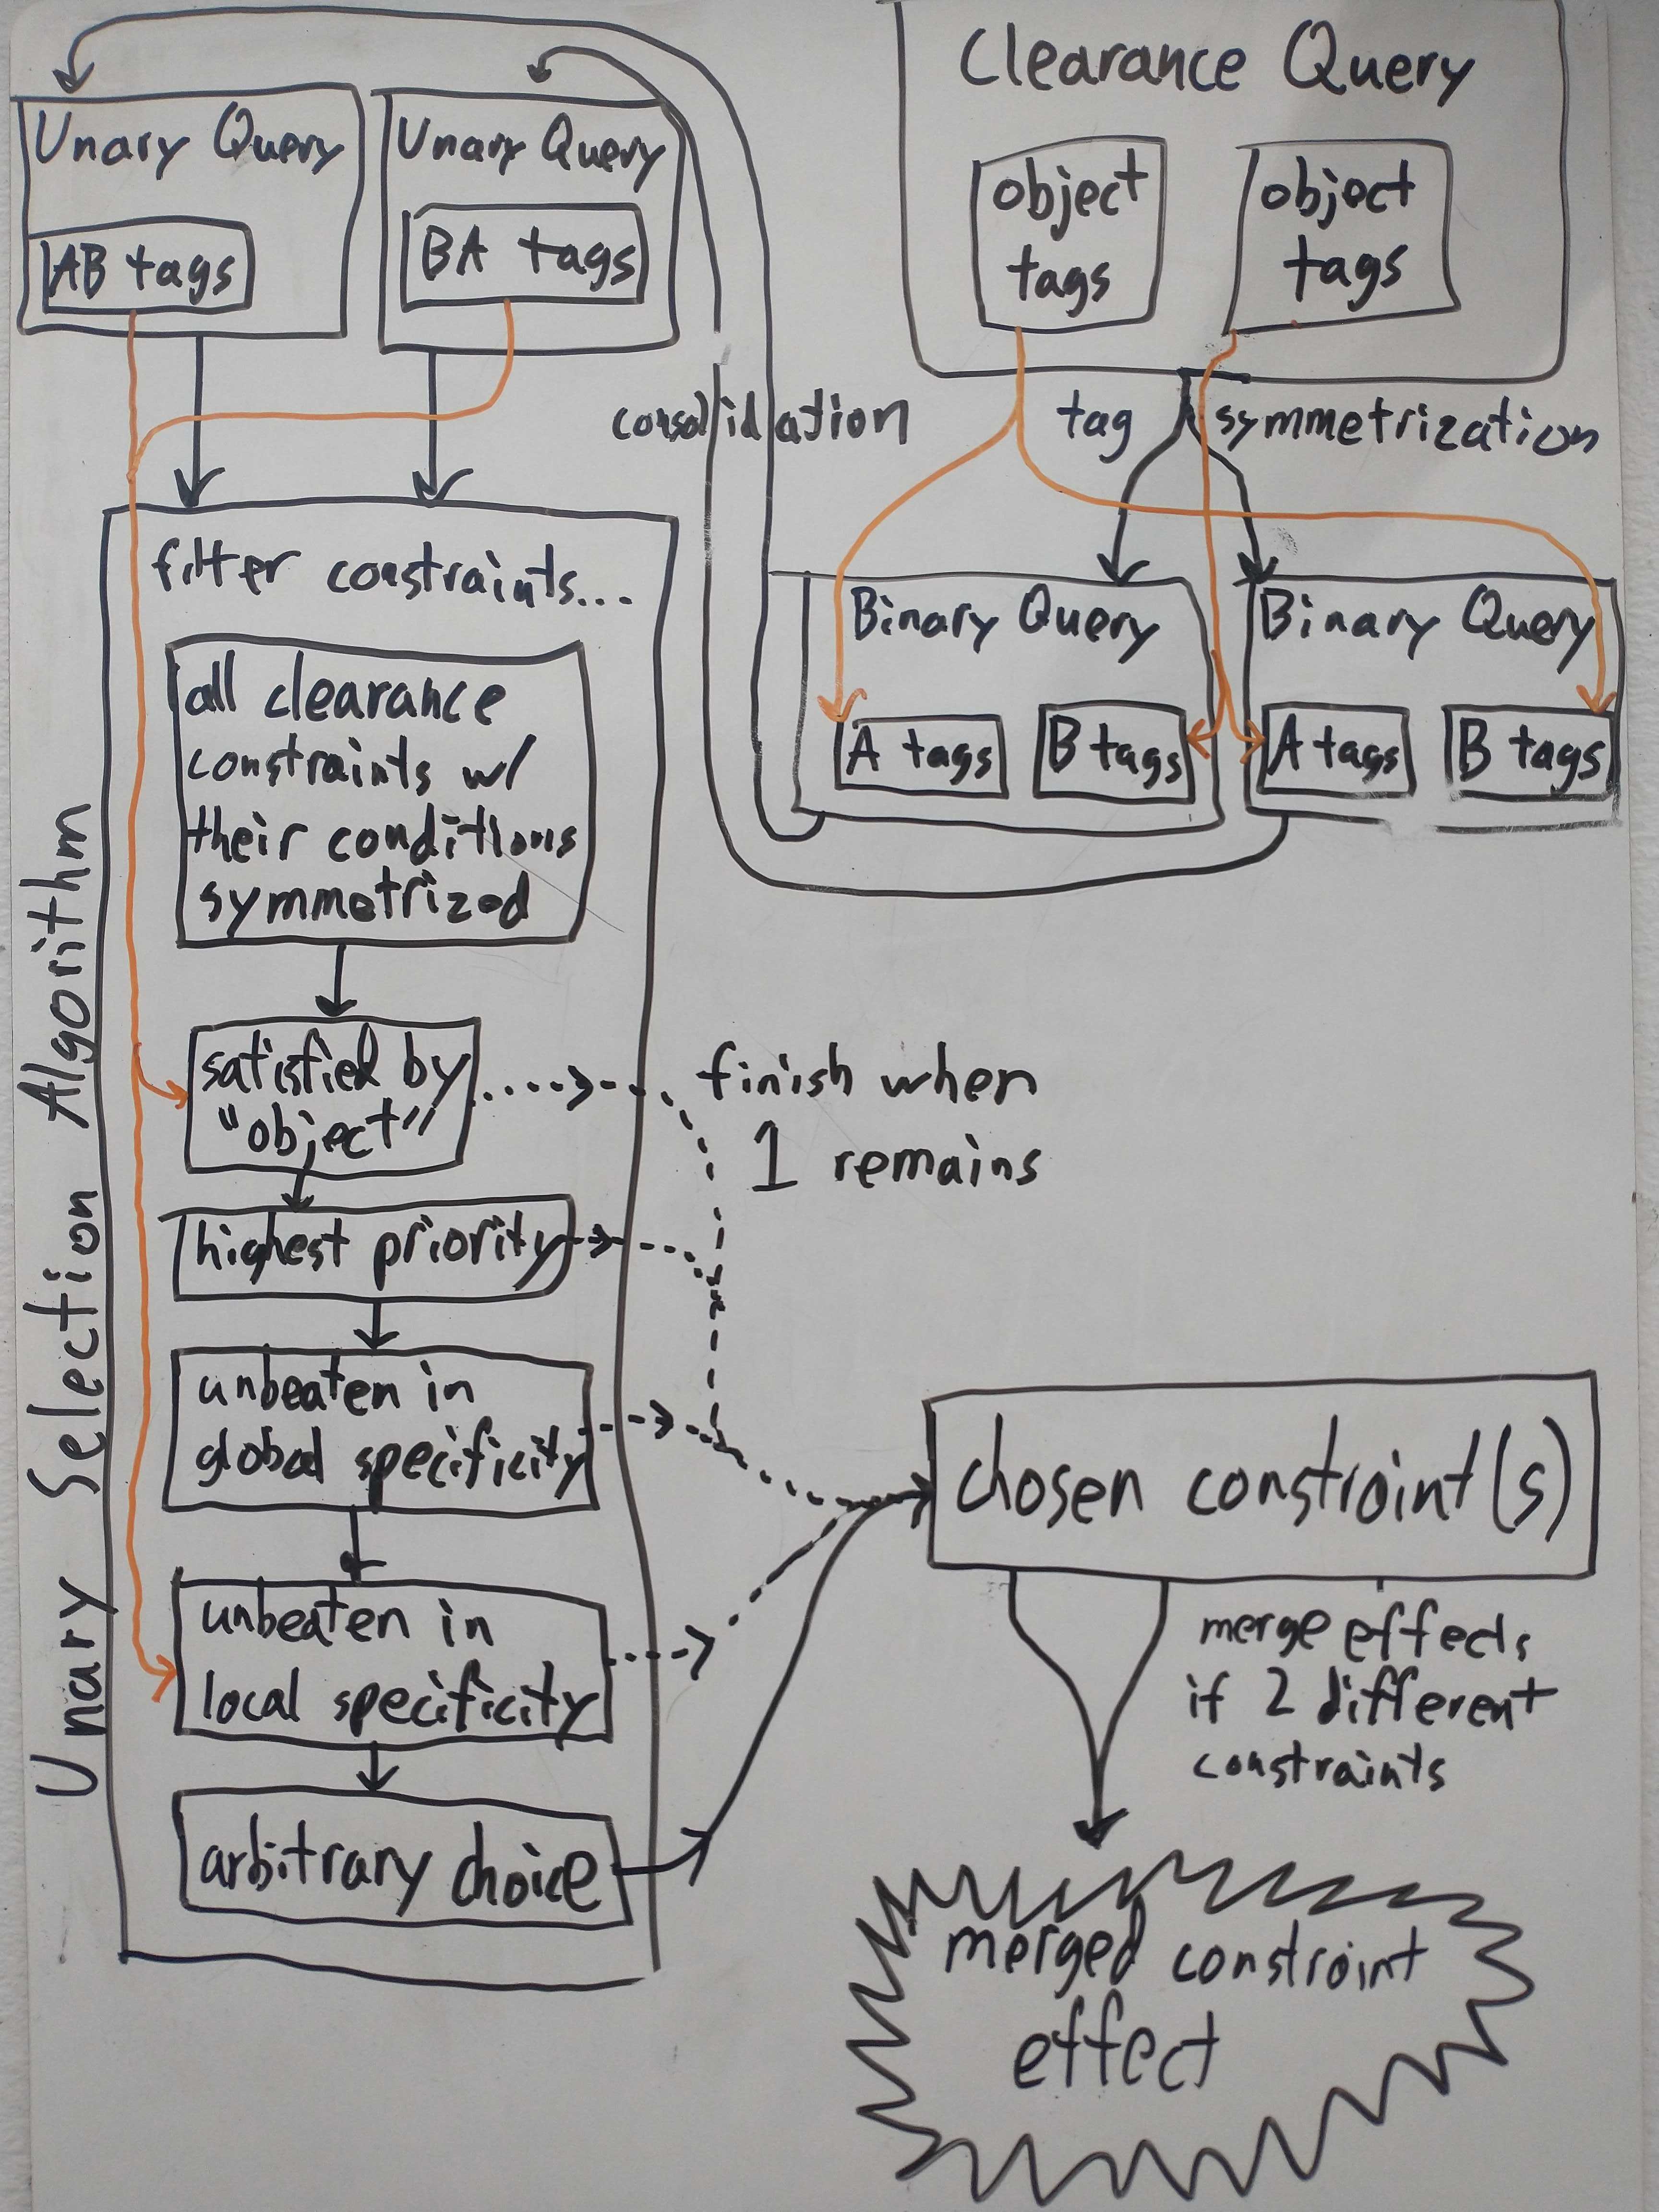 Clearance Query
object
tags
object
tags
tag symmetrization
Binary Query
A tags
B tags
Binary Query
A tags
B tags
consolidation
Unary Query
AB tags
Unary Query
BA tags
Unary Selection Algorithm
filter constraints...
all clearance
constraints w/
their conditions
symmetrized
satisfied by
"object"
highest priority
unbeaten in
global specificity
unbeaten in
local specificity
arbitrary choice
finish when
1 remains
chosen constraint(s)
merge effects
if 2 different
constraints
merged constraint
effect